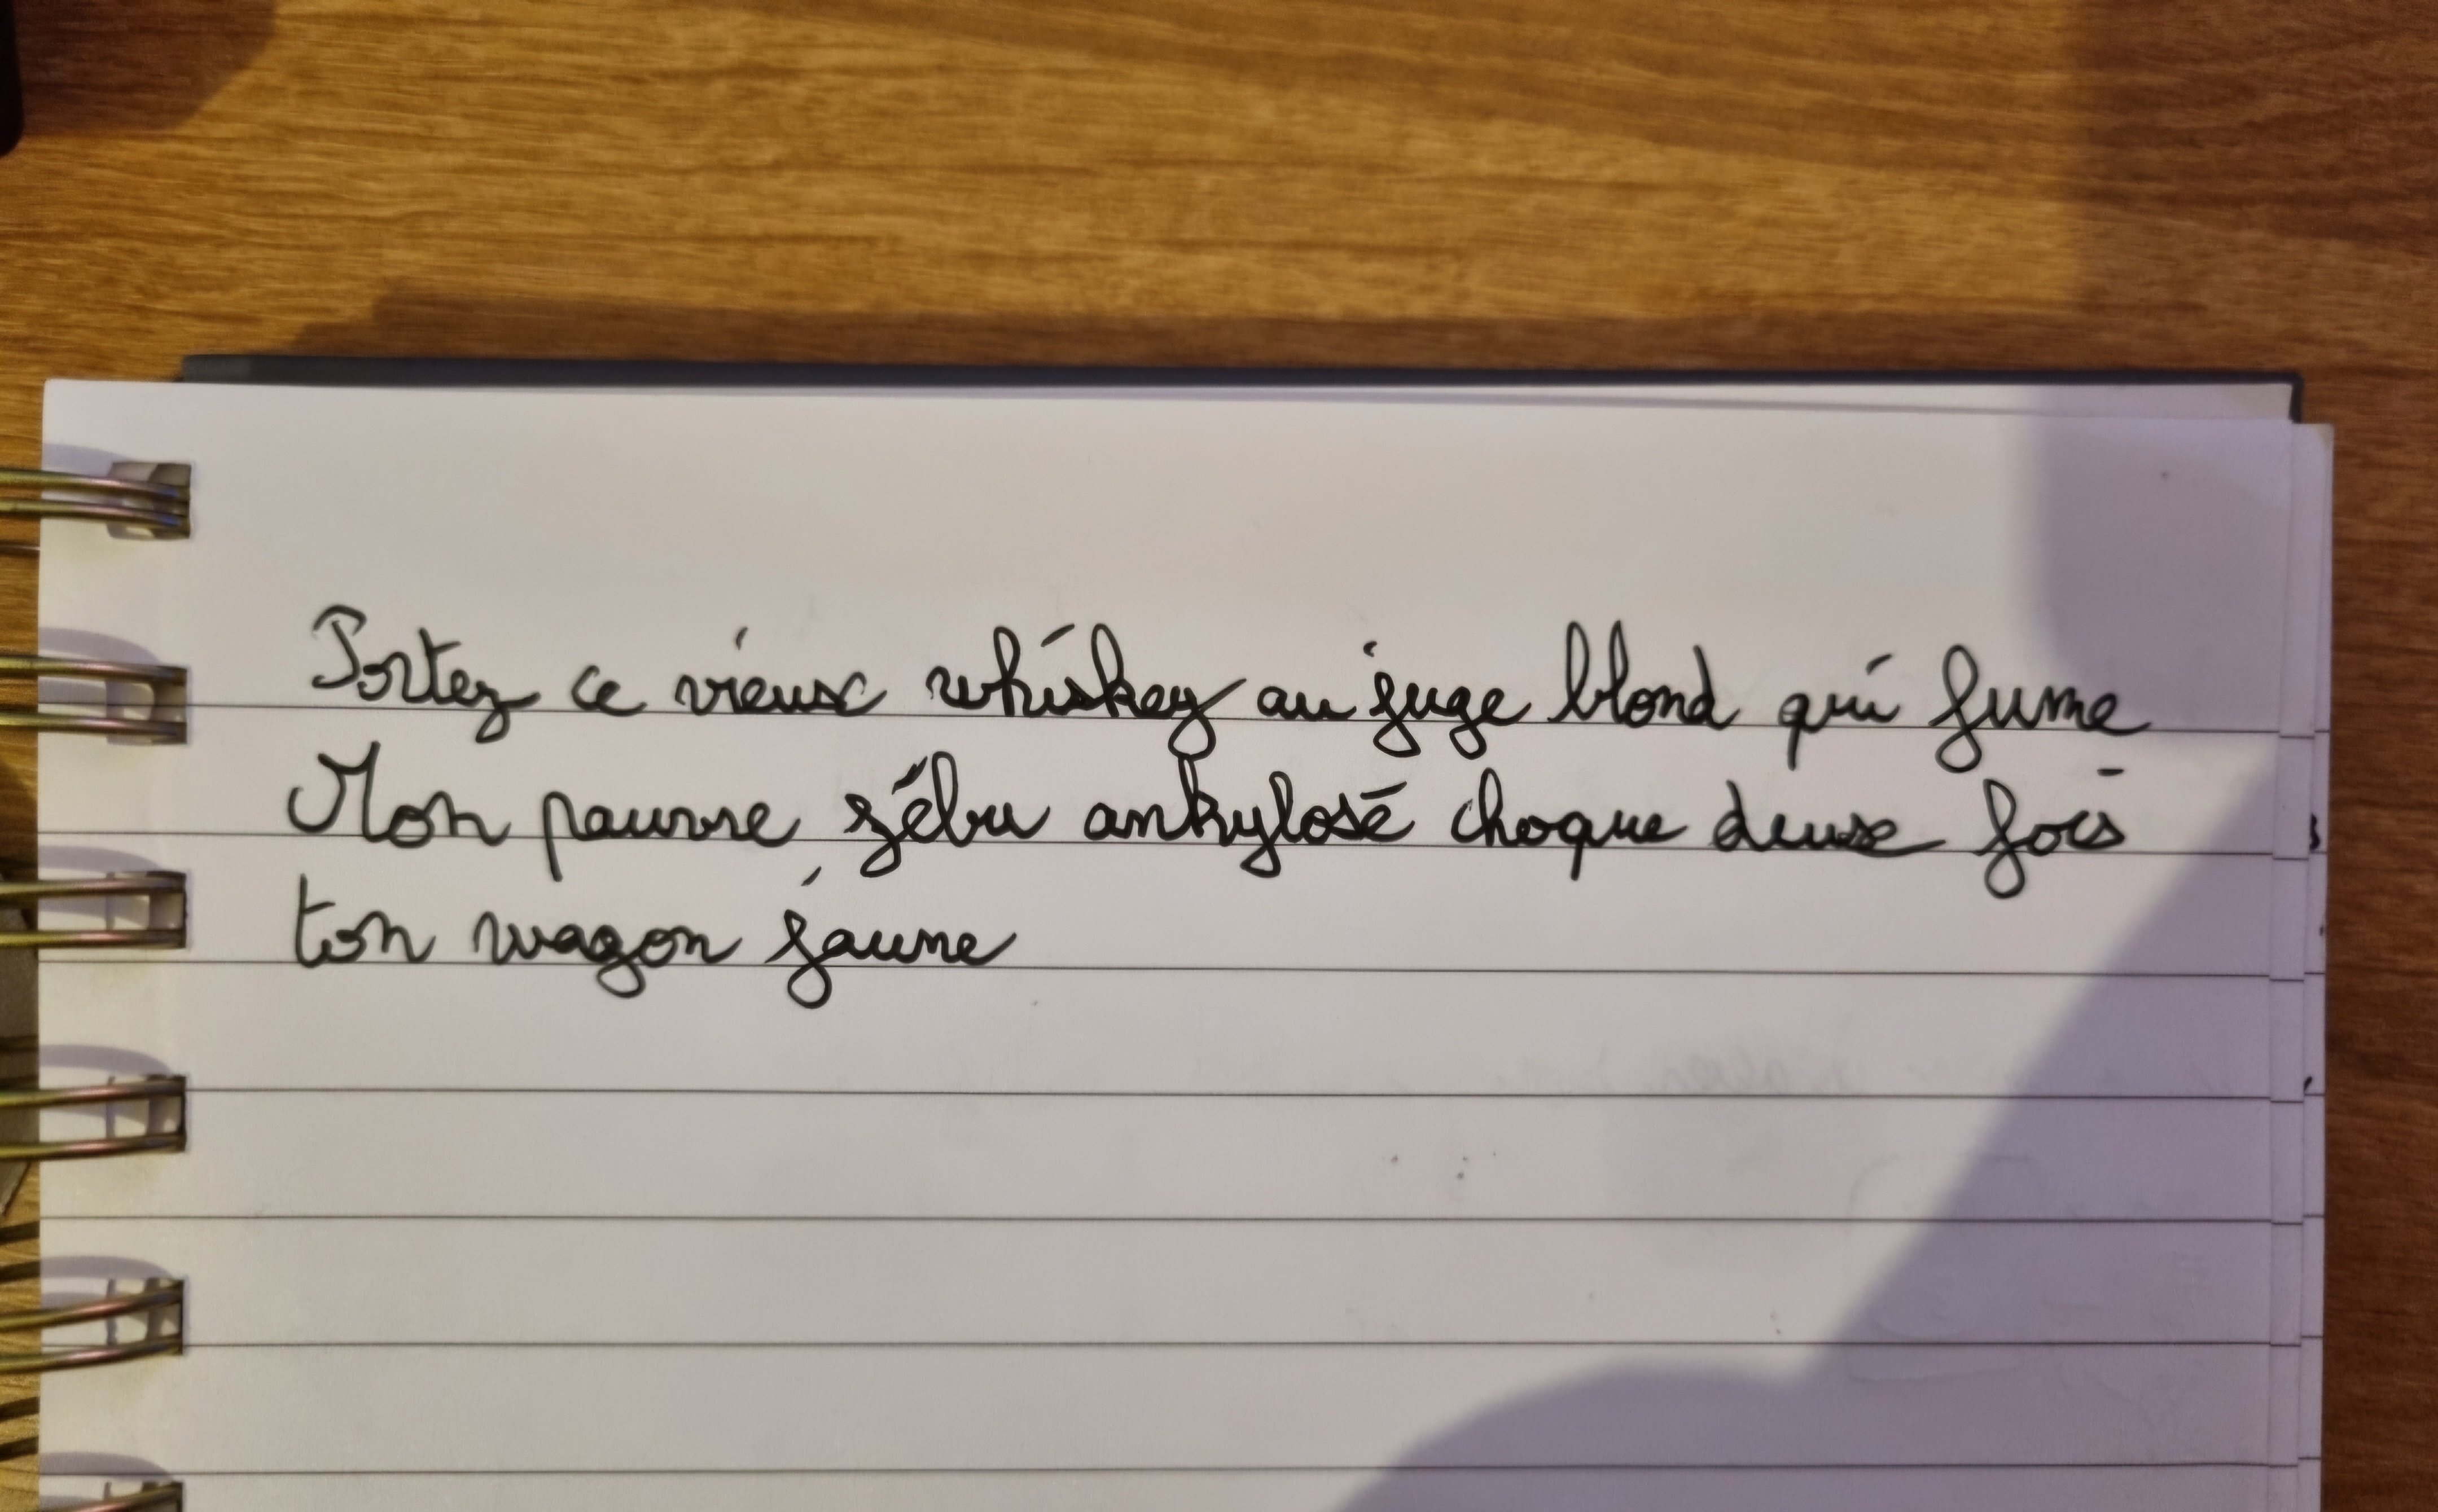 Portez ce vieux whiskey au juge blond qui fume
Mon pauvre zébu ankylosé choque deux fois
ton wagon jaune